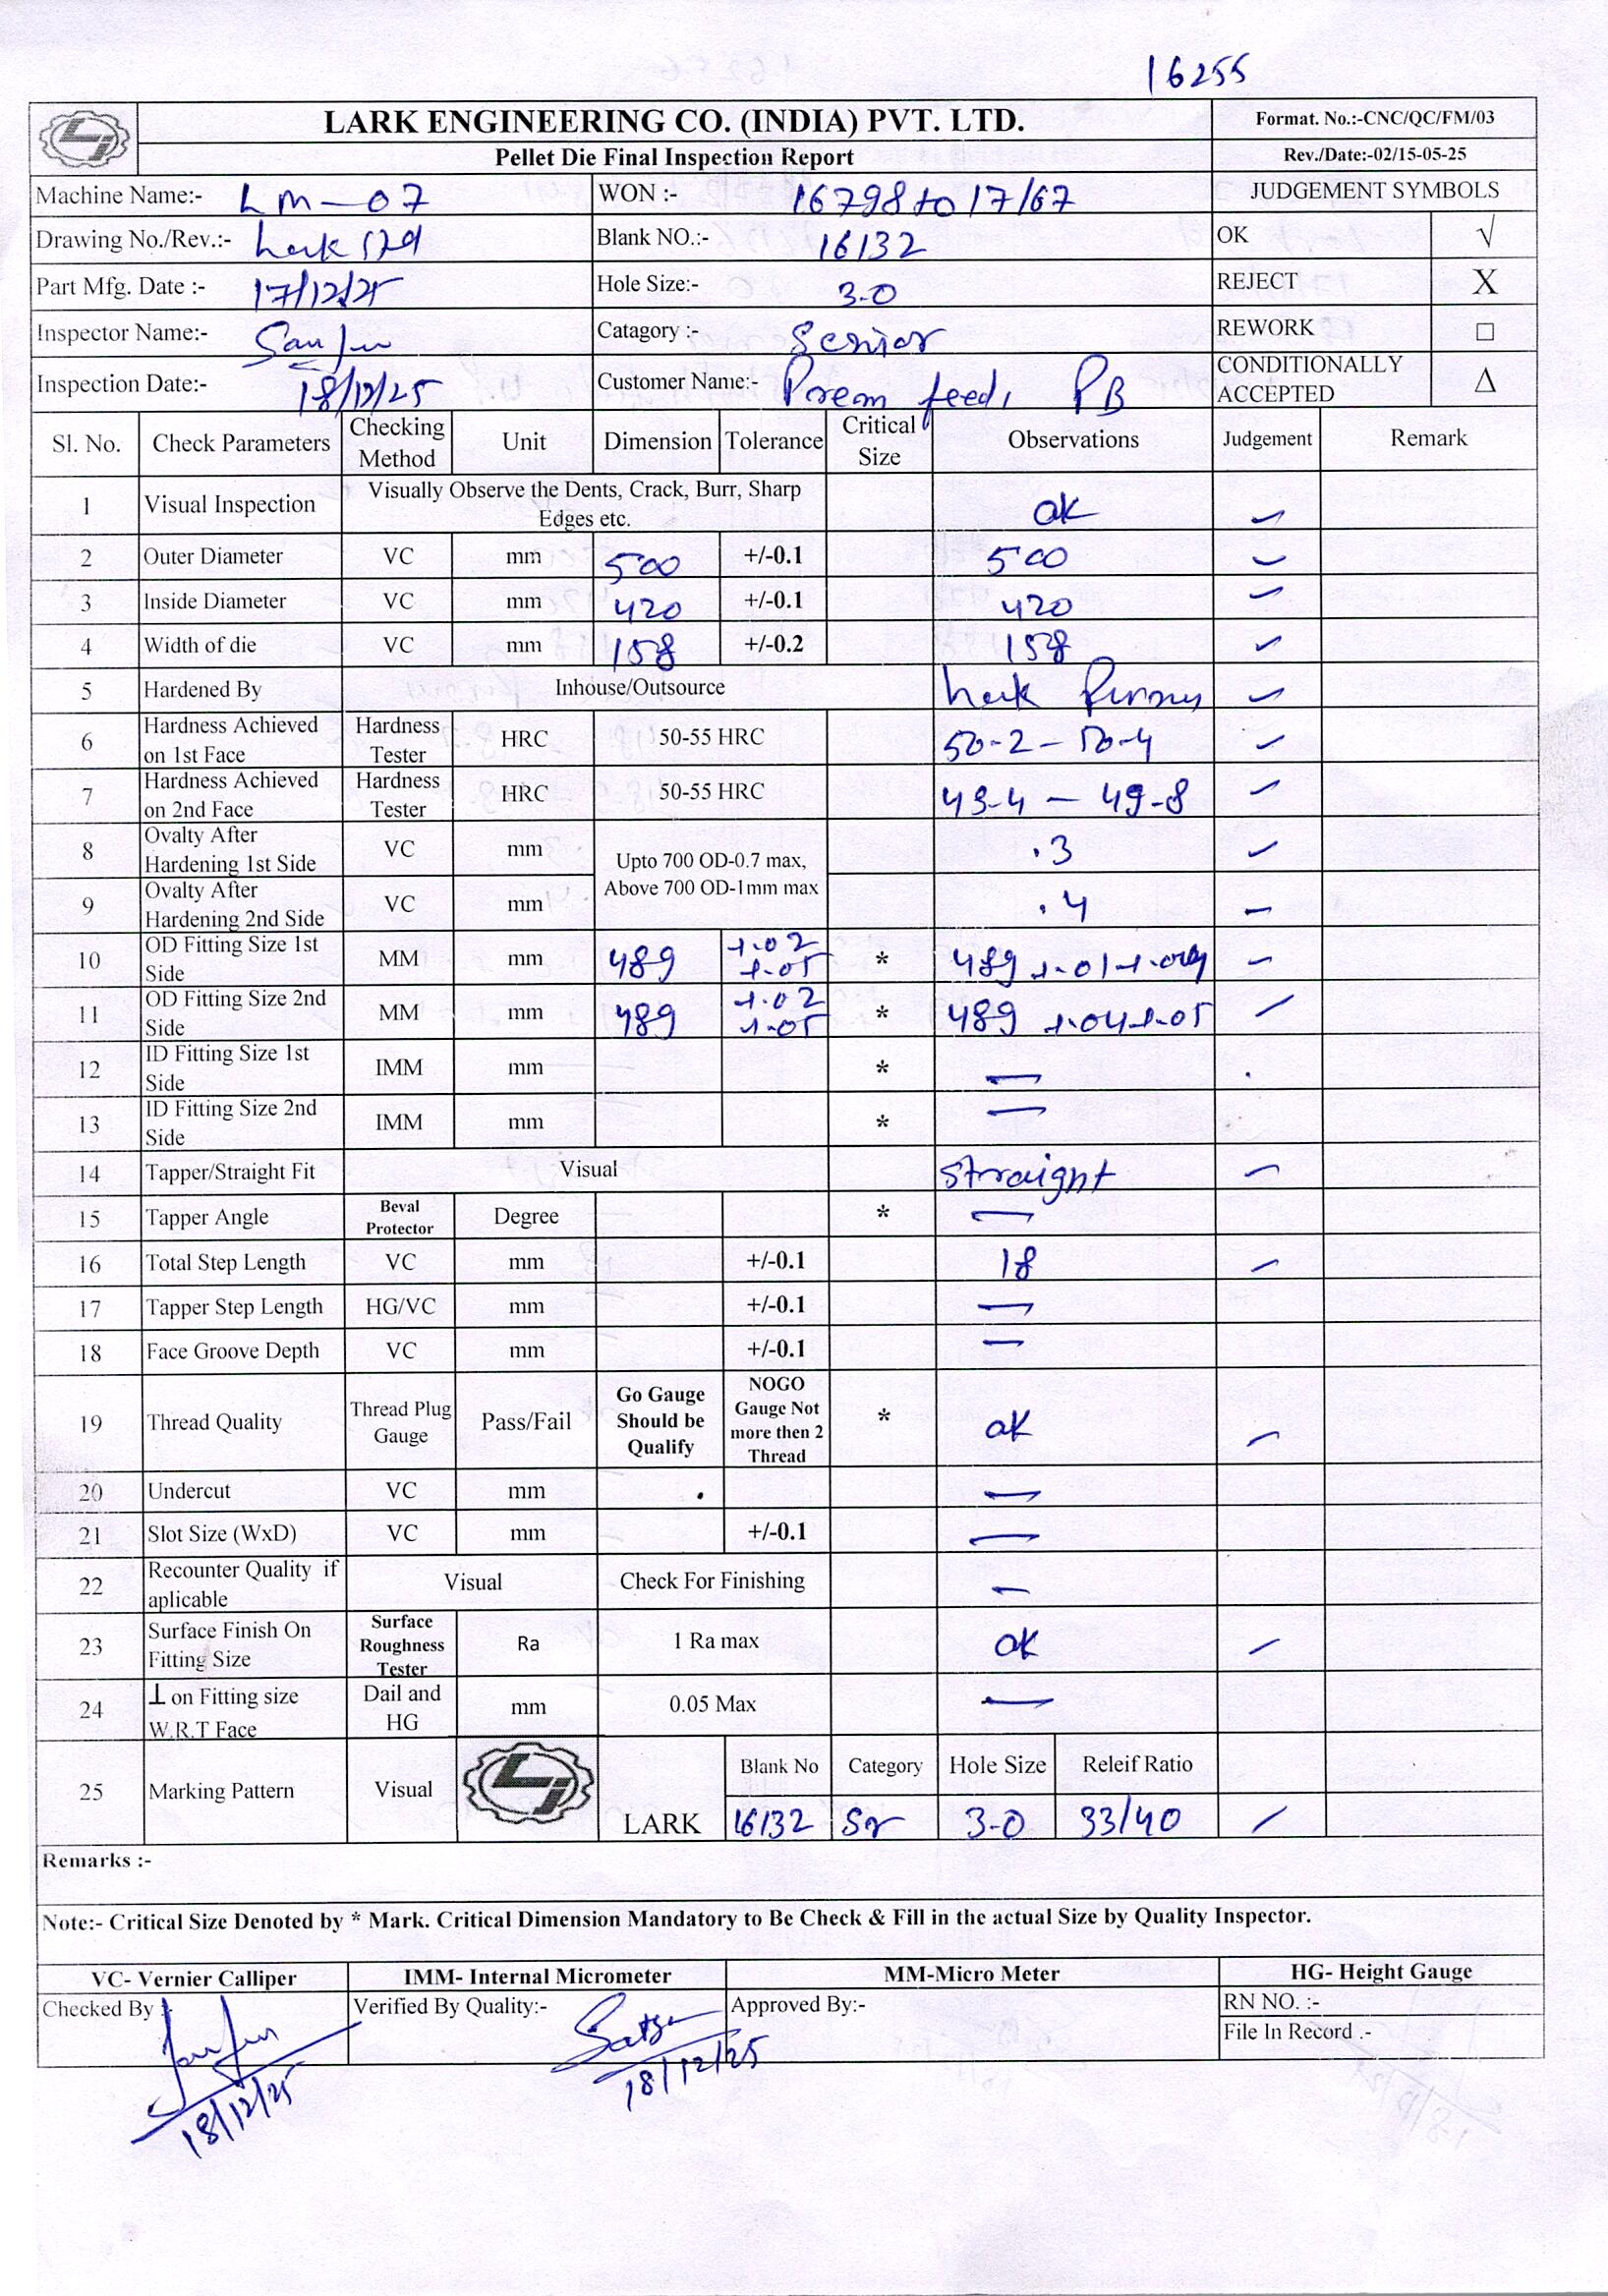 16255
LARK ENGINEERING CO. (INDIA) PVT. LTD. Format. No.:-CNC/QC/FM/03
Pellet Die Final Inspection Report Rev./Date:-02/15-05-25
Machine Name:- LM-07 WON :- 16798 to 17/67 JUDGEMENT SYMBOLS
Drawing No./Rev.:- Lark std Blank NO.:- 16132 OK √
Part Mfg. Date :- 17/12/25 Hole Size:- 3.0 REJECT X
Inspector Name:- Catagory :- Senior REWORK □
Inspection Date:- 18/12/25 Customer Name:- Prem feeds PB CONDITIONALLY ACCEPTED Δ
Sl. No. Check Parameters Checking Method Unit Dimension Tolerance Critical Size Observations Judgement Remark
1 Visual Inspection Visually Observe the Dents, Crack, Burr, Sharp Edges etc. ok
2 Outer Diameter VC mm 500 +/-0.1 500
3 Inside Diameter VC mm 420 +/-0.1 420
4 Width of die VC mm 158 +/-0.2 158
5 Hardened By Inhouse/Outsource Lark
6 Hardness Achieved on 1st Face Hardness Tester HRC 50-55 HRC 50-2 - 50-4
7 Hardness Achieved on 2nd Face Hardness Tester HRC 50-55 HRC 49-4 - 49-8
8 Ovalty After Hardening 1st Side VC mm Upto 700 OD-0.7 max, Above 700 OD-1mm max .3
9 Ovalty After Hardening 2nd Side VC mm .4
10 OD Fitting Size 1st Side MM mm 489 +.02 +.05 * 489 +.01
11 OD Fitting Size 2nd Side MM mm 489 +.02 +.05 * 489 +.04 +.05
12 ID Fitting Size 1st Side IMM mm * —
13 ID Fitting Size 2nd Side IMM mm * —
14 Tapper/Straight Fit Visual Straight
15 Tapper Angle Beval Protector Degree * —
16 Total Step Length VC mm +/-0.1 18
17 Tapper Step Length HG/VC mm +/-0.1 —
18 Face Groove Depth VC mm +/-0.1 —
19 Thread Quality Thread Plug Gauge Pass/Fail Go Gauge Should be Qualify NOGO Gauge Not more then 2 Thread * ok
20 Undercut VC mm —
21 Slot Size (WxD) VC mm +/-0.1 —
22 Recounter Quality if aplicable Visual Check For Finishing —
23 Surface Finish On Fitting Size Surface Roughness Tester Ra 1 Ra max ok
24 ⊥ on Fitting size W.R.T Face Dail and HG mm 0.05 Max —
25 Marking Pattern Visual LARK Blank No Category Hole Size Releif Ratio
16132 Sr 3-0 33/40
Remarks :-
Note:- Critical Size Denoted by * Mark. Critical Dimension Mandatory to Be Check & Fill in the actual Size by Quality Inspector.
VC- Vernier Calliper IMM- Internal Micrometer MM-Micro Meter HG- Height Gauge
Checked By :- Verified By Quality:- Approved By:- RN NO. :-
File In Record .-
18/12/25 18/12/25